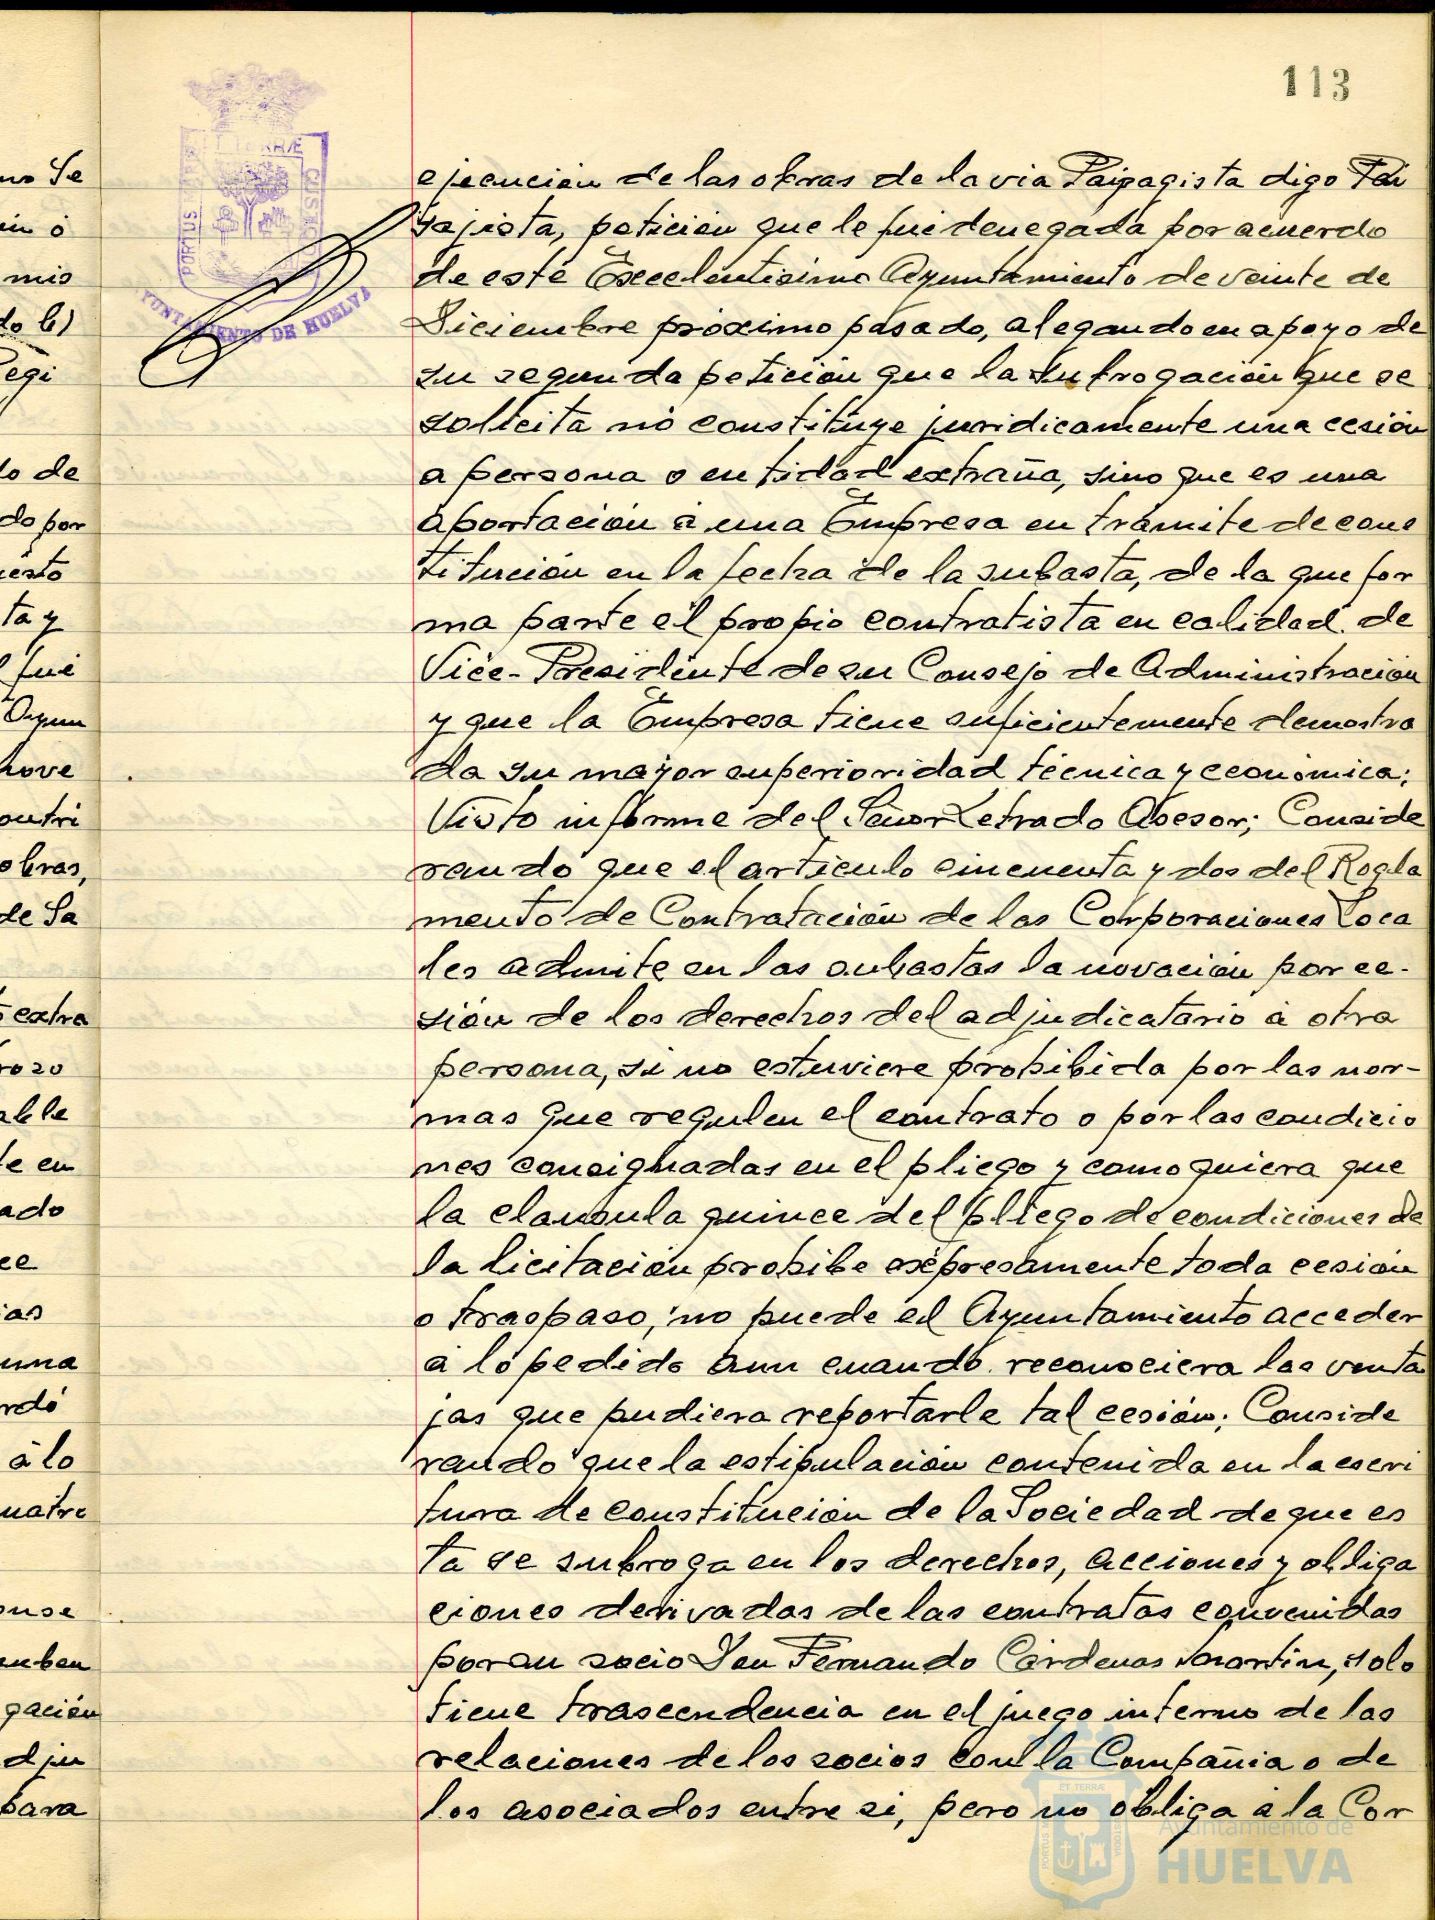 113
ejecución de las obras de la via Paipagista digo Pai
sajista, petición que le fué denegada por acuerdo
de este Excelentísimo Ayuntamiento de veinte de
Diciembre próximo pasado, alegando en apoyo de
su segunda petición que la subrogación que se
solicita no constituye juridicamente una cesión
a persona o entidad extraña, sino que es una
aportación á una Empresa en trámite de cons
titución en la fecha de la subasta, de la que for
ma parte el propio contratista en calidad de
Vice-Presidente de su Consejo de Administración
y que la Empresa tiene suficientemente demostra
da su mayor superioridad técnica y económica;
Visto informe del Señor Letrado Asesor; Conside
rando que el artículo cincuenta y dos del Regla
mento de Contratación de las Corporaciones Loca
les admite en las subastas la novación por ce-
sión de los derechos del adjudicatario á otra
persona, si no estuviere prohibida por las nor-
mas que regulen el contrato o por las condicio
nes consignadas en el pliego y como quiera que
la clausula quince del pliego de condiciones de
la licitación prohibe expresamente toda cesión
o traspaso, no puede el Ayuntamiento acceder
á lo pedido aun cuando reconociera las venta
jas que pudiera reportarle tal cesión; Conside
rando que la estipulación contenida en la escri
tura de constitución de la Sociedad de que es
ta se subroga en los derechos, acciones y obliga
ciones derivadas de las contratas convenidas
por su socio Don Fernando Cárdenas Martin, solo
tiene trascendencia en el juego interno de las
relaciones de los socios con la Compañia o de
los asociados entre si, pero no obliga á la Cor
PORTUS MARIS
ET TERRÆ
CUSTODIA
AYUNTAMIENTO DE HUELVA
Se
ó
mis
do b)
Regi
do de
do por
ta y
fué
Ayun
nove
contri
obras,
de Sa
extra
able
te en
ado
una
á lo
cuatro
gación
adju
para
Ayuntamiento de
HUELVA